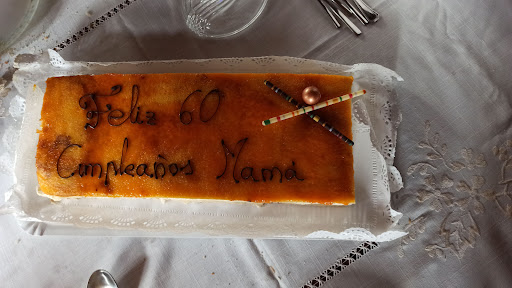 Feliz 60
Cumpleaños Mamá